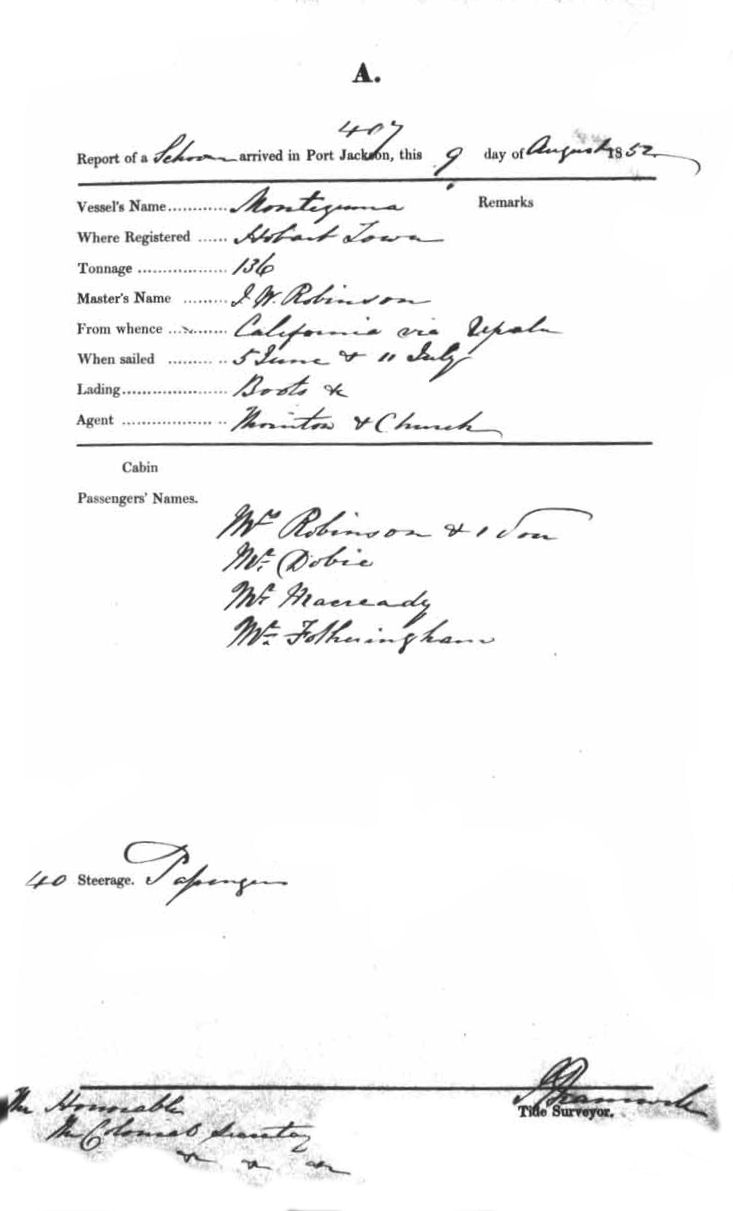 A.
407
Report of a Schooner arrived in Port Jackson, this 9 day of August 1852
Vessel's Name Montezuma Remarks
Where Registered Hobart Town
Tonnage 136
Master's Name J. W. Robinson
From whence California via Upolu
When sailed 5 June & 11 July
Lading Boots &c
Agent Thornton & Church
Cabin
Passengers' Names.
Mrs Robinson & 1 Son
Mr. Dobie
Mr. Macready
Mr. Fotheringham
40 Steerage. Passengers
Tide Surveyor.
The Honorable
The Colonial Secretary
&c &c &c